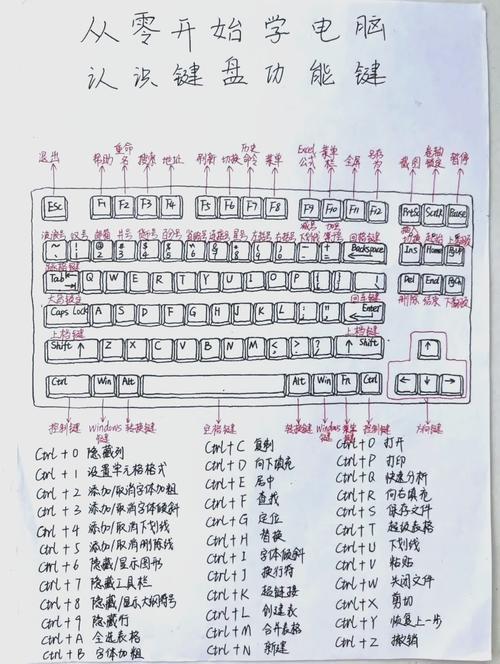 从零开始学电脑
认识键盘功能键
退出 帮助 重命名 搜索 地址 刷新 切换 历史命令 菜单 Excel公式 菜单栏 全屏 另存为 截图 卷轴锁定 暂停
Esc F1 F2 F3 F4 F5 F6 F7 F8 F9 F10 F11 F12 PrtSc ScrLk Pause
波浪号 叹号 邮箱 井号 货币号 百分号 省略号 连接号 星号 左括号 右括号 减号下划线 加号等于号 回格键 插入切换 起始 上翻页
~ ! @ 2 # 3 $ 4 % 5 ^ 6 & 7 * 8 ( 9 ) 0 - = Backspace Ins Home PgUp
跳格键
Tab Q W E R T Y U I O P { } Del End PgDn
大写锁定 回车键 删除 结束 下翻页
Caps Lock A S D F G H J K L Enter
上档键 上档键
Shift ↑ Z X C V B N M < > ? ↑ Shift ↑
Ctrl Win Alt Alt Win Fn Ctrl ← ↓ →
控制键 Windows键 转换键 空格键 转换键 Windows键 菜单键 控制键 方向键
Ctrl + 0 隐藏列
Ctrl + 1 设置单元格格式
Ctrl + 2 添加/取消字体加粗
Ctrl + 3 添加/取消字体倾斜
Ctrl + 4 添加/取消下划线
Ctrl + 5 添加/取消删除线
Ctrl + 6 隐藏/显示图形
Ctrl + 7 隐藏工具栏
Ctrl + 8 隐藏/显示大纲符号
Ctrl + 9 隐藏行
Ctrl + A 全选表格
Ctrl + B 字体加粗
Ctrl + C 复制
Ctrl + D 向下填充
Ctrl + E 居中
Ctrl + F 查找
Ctrl + G 定位
Ctrl + H 替换
Ctrl + I 字体倾斜
Ctrl + J 换行符
Ctrl + K 超链接
Ctrl + L 创建表
Ctrl + M 合并表格
Ctrl + N 新建
Ctrl + O 打开
Ctrl + P 打印
Ctrl + Q 快速分析
Ctrl + R 向右填充
Ctrl + S 保存文件
Ctrl + T 超级表格
Ctrl + U 下划线
Ctrl + V 粘贴
Ctrl + W 关闭文件
Ctrl + X 剪切
Ctrl + Y 恢复上一步
Ctrl + Z 撤销